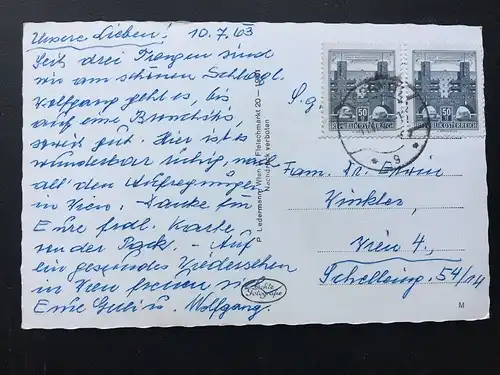 Unsere Lieben! 10.7.63
Seit drei Tagen sind
wir am schönen
Wolfgang geht es, bis
auf eine Bronchitis,
gut. Hier ist es
wunderbar ruhig, nach
all den Aufregungen
in Wien. Danke für
Eure frdl. Karte
von der . - Auf
ein gesundes Wiedersehen
in Wien freuen sich
Eure u. Wolfgang.
P. Ledermann, Wien I, Fleischmarkt 20
Nachdruck verboten
Echte
Fotografie
S.g.
Fam. Dr. Erwin
Winkler,
Wien 4.,
Schelleing. 54/14
50 50
REPUBLIK ÖSTERREICH REPUBLIK ÖSTERREICH
* 9 *
M